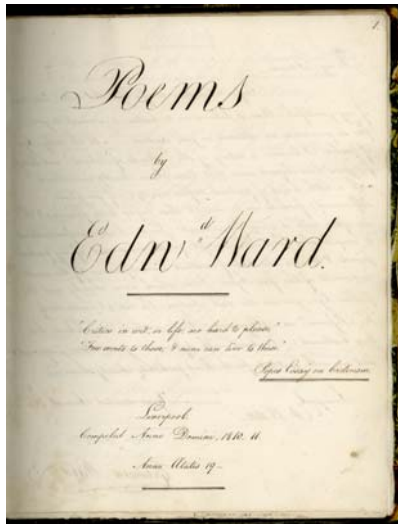 1.
Poems
by
Edwd Ward.
"Critics in wit, or life, are hard to please,"
"Few write to those, & none can live to these."
Popes Essay on Criticism
Liverpool.
Compiled Anno Domini, 1840. 41
Anno Ætatis 19.